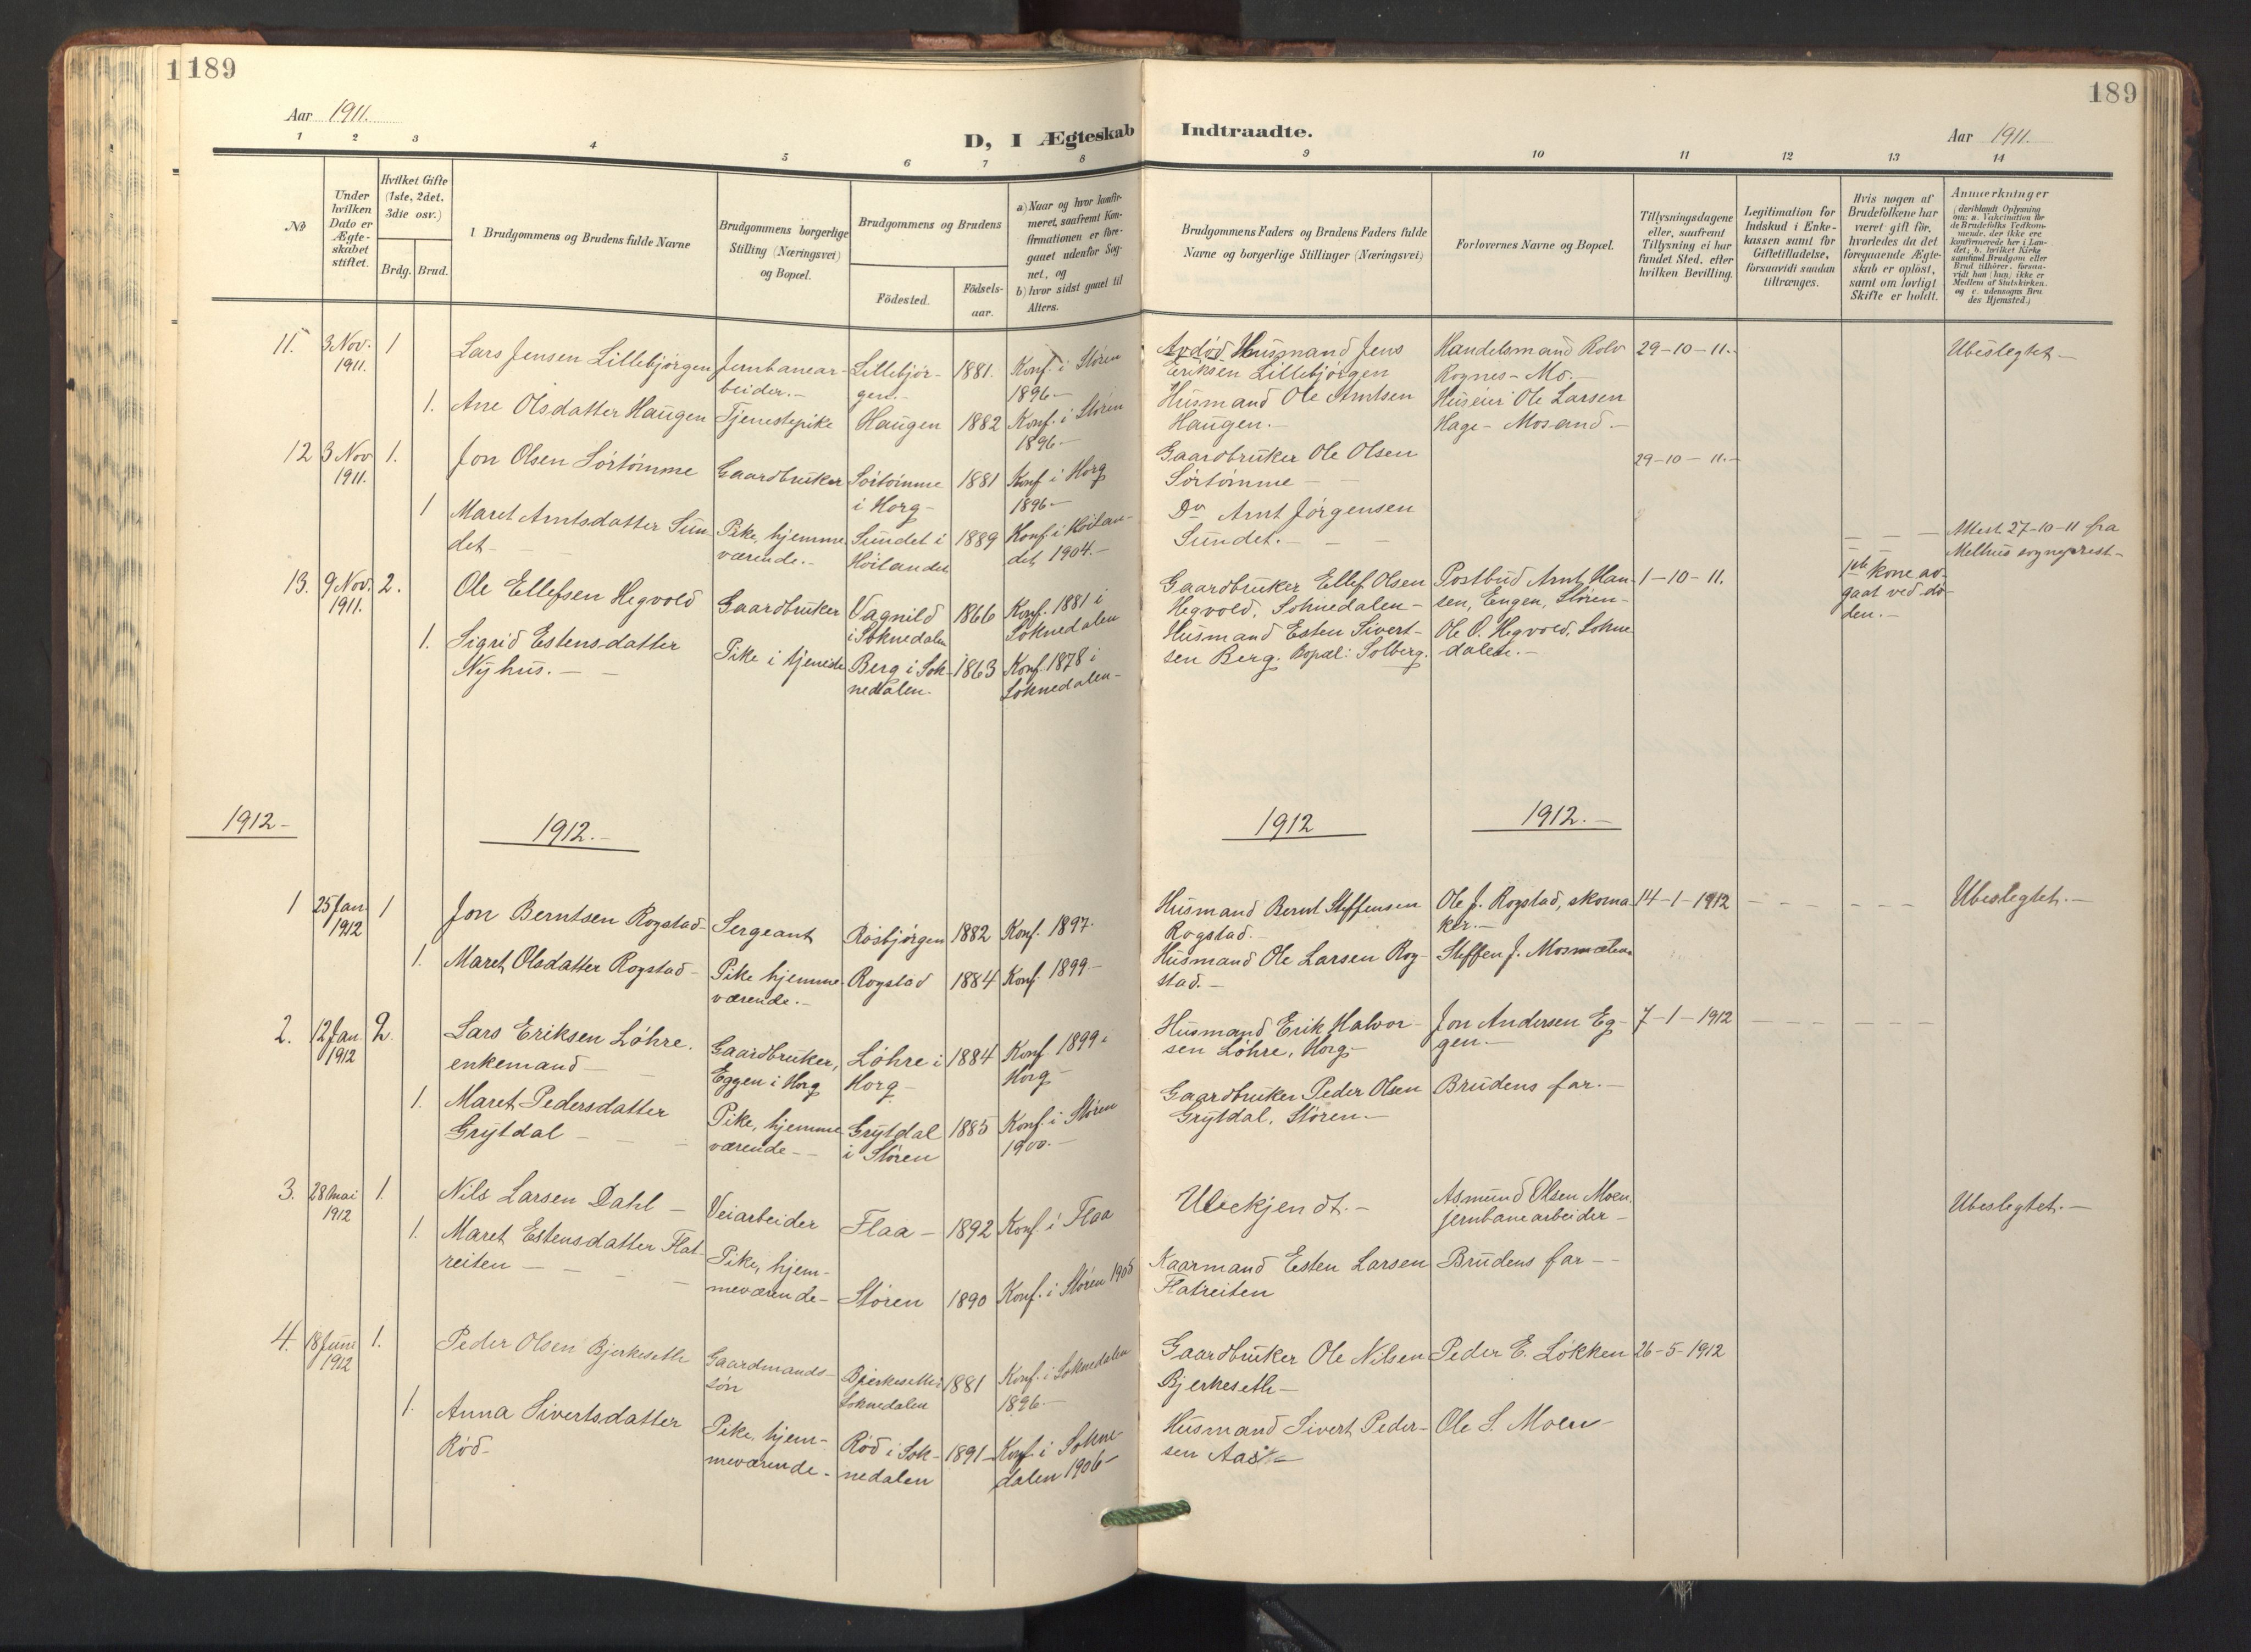 1189
189
Aar 1911.
D, I Ægteskab Indtraadte.
Aar 1911.
1 2 3 4 5 6 7 8 9 10 11 12 13 14
No
Under hvilken Dato er Ægteskabet stiftet.
Hvilket Gifte (1ste, 2det, 3die osv.)
Brdg. Brud.
Brudgommens og Brudens fulde Navne
Brudgommens borgerlige Stilling (Næringsvei) og Bopæl.
Brudgommens og Brudens
Födested.
Födselsaar.
a) Naar og hvor konfirmeret, saafremt Konfirmationen er foregaaet udenfor Sognet, og
b) hvor sidst gaaet til Alters.
Brudgommens Faders og Brudens Faders fulde Navne og borgerlige Stillinger (Næringsvei)
Forlovernes Navne og Bopæl.
Tillysningsdagene eller, saafremt Tillysning ei har fundet Sted, efter hvilken Bevilling.
Legitimation for Indskud i Enkekassen samt for Giftetilladelse, forsaavidt saadan tiltrænges.
Hvis nogen af Brudefolkene har været gift för, hvorledes da det foregaaende Ægteskab er oplöst, samt om lovligt Skifte er holdt.
Anmærkninger
(deriblandt Oplysning om: a. Vakcination for de Brudefolks Vedkommende, der ikke ere konfirmerede her i Landet; b. hvilket Kirkesamfund Brudgom eller Brud tilhörer, forsaavidt han (hun) ikke er Medlem af Statskirken, og c. udensogns Brudes Hjemsted.)
11. 3 Nov. 1911. 1 Lars Jensen Lillebjørgen Jernbanearbeider.- Lillebjørgen.- 1881. Konf. i Støren 1896.- Avdød Husmand Jens Eriksen Lillebjørgen Handelsmand Rolv Rognes - Mo.- 29-10-11.- Ubeslegtet.-
1. Ane Olsdatter Haugen Tjenestepike Haugen 1882 Konf. i Støren 1896.- Husmand Ole Arntsen Haugen.- Huseier Ole Larsen Hage - Mosand.-
12 3 Nov 1911. 1. Jon Olsen Sørtømme Gaardbruker Sørtømme i Horg - 1881 Konf i Horg 1896.- Gaardbruker Ole Olsen Sørtømme - - 29-10-11.-
1 Maret Arntsdatter Sundet - - Pike, hjemmeværende.- Sundet i Høilandet 1889 Konf. i Høilandet 1904.- Do Arnt Jørgensen Sundet.- - - Attest 27-10-11 fra Melhus sogneprest-
13. 9 Nov. 1911. 2. Ole Ellefsen Hegvold Gaardbruker Vagnild i Soknedalen 1866 Konf. 1881 i Soknedalen Gaardbruker Ellef Olsen Hegvold, Soknedalen - Postbud Arnt Hansen, Engen, Støren - 1-10-11. 1ste kone avgaat ved døden.-
1. Sigrid Estensdatter Nyhus.- - Pike i tjeneste Berg i Soknedalen. 1863 Konf. 1878 i Soknedalen - Husmand Esten Sivertsen Berg. Bopæl: Solberg. Ole O. Hegvold, Soknedalen.-
1912 - 1912.- 1912 1912.-
1 25 Jan 1912 1 Jon Berntsen Rogstad - Sergeant Rosbjørgen 1882 Konf. 1897. Husmand Bernt Steffensen Rogstad.- Ole J. Rogstad, skomaker.- 14-1-1912 - - - - - Ubeslegtet.-
1. Maret Olsdatter Rogstad - Pike hjemmeværende.- Rogstad 1884 Konf. 1899.- Husmand Ole Larsen Rogstad.- Steffen J. Mosmælen
2. 12 Jan 1912 2. Lars Eriksen Løhre. enkemand - - Gaardbruker, Eggen i Horg Løhre i Horg - 1884 Konf 1899 i Horg - Husmand Erik Halvorsen Løhre, Horg- Jon Andersen Eggen - 7-1-1912 - - - - - -
1. Maret Pedersdatter Grytdal - - - Pike, hjemmeværende - - Grytdal i Støren 1885 Konf. i Støren 1900.- Gaardbruker Peder Olsen Grytdal, Støren.- Brudens far.-
3. 28 Mai 1912 1. Nils Larsen Dahl - Veiarbeider Flaa - 1892 Konf. i Flaa Ubekjendt.- Asmund Olsen Moen, jernbanearbeider - Ubeslegtet.-
1. Maret Estensdatter Flatreiten - - - - Pike, hjemmeværende - Støren 1890 Konf. i Støren 1905 Kaarmand Esten Larsen Flatreiten Brudens far - -
4. 18 Juni 1912 1. Peder Olsen Bjerkeseth Gaardmandssøn Bjerkeseth i Soknedalen 1881 Konf. i Soknedalen 1896.- Gaardbruker Ole Nilsen Bjerkeseth - Peder E. Løkken 26-5-1912
1. Anna Sivertsdatter Rød - Pike, hjemmeværende - Rød i Soknedalen 1891 - Konf i Soknedalen 1906 - Husmand Sivert Pedersen Aas Ole S. Moen